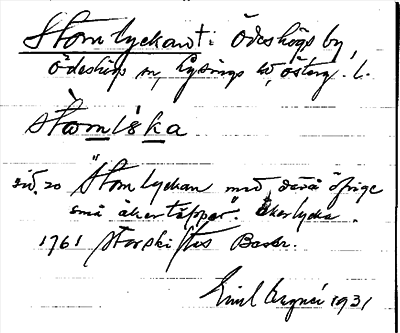 Stomlyckan t. Ödeshögs by,
Ödeshögs sn, Lysings hd, Österg. l.
stòmlska
sid. 20 "Stomlyckan med därå öfrige
små åkertäppor". Åkerlycka.
1761 Storskiftes Beskr.
Emil 1931